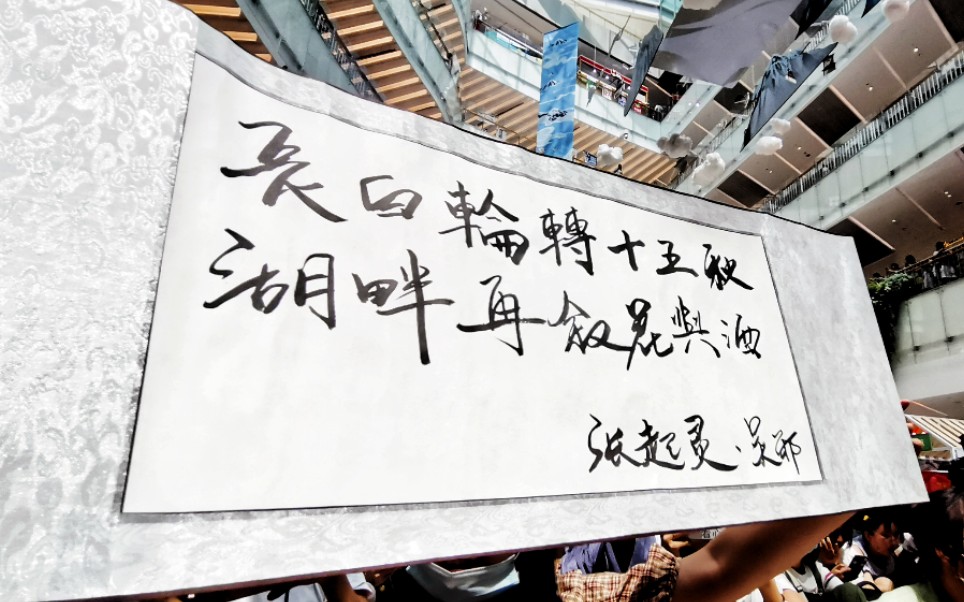 長白輪轉十五秋
湖畔再敘花與酒
张起灵·吴邪